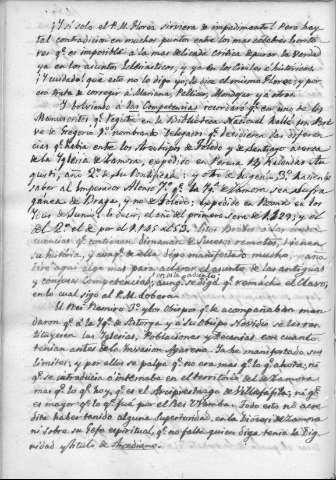 ¡Y si solo el R. M. Florez sirviera de impedimento! Pero hay
tal contradiccion en muchos puntos entre los mas celebres histo
res qe. es imposible à la mas delicada critica apurar la verdad
ya en los asuntos Eclesiasticos, y ya en los Civiles é historicos.
¡Y cuidado! que esto no lo digo yo; lo dice el mismo Florez; y por
no trata de corregir a Mariana, Pellicer, Mondejar y a otros.
Y bolviendo à las Competencias recordaré qe. en uno de los
Manuscritos qe. registré en la Biblioteca Nacional hallé un Bre
ve de Gregorio nombrando Delegados qe. decidieran las diferen
cias qe. habia entre los Arzobispos de Toledo y de Santiago acerca
de la Yglesia de Zamora, expedido en Perusa
año 2º de su Pontificado: y otro de Eugenio 3º haciendo
saber al Emperador Alonso 7º qe. la Yga. de Zamora sea sufra
ganea de Braga, y no de Toledo; expedido en Roma en los
Ydus de Junio; lo decir, el año del primero sera de 1229; y el
del 2º el de por el 1145 al 53.
cuencias qe. contienen dimanan de sucesos remotos, tienen
su historia, y aunqe. de ella dejo manifestado mucho,
tiré aqui algo mas para aclarar el asunto de las antiguas
y conque Competencias, aunqe. se diga qe. remacho el clavo,
en lo cual sigo al P. M.
El Rei Ramiro 3º y los Obispos qe. le acompañaban man
daron qe. à la Yga. de Astorga y à su Obispo Novidio se les res
tituyeran las Yglesias, Poblaciones y Decanias con cuanto
tenian antes de la Invasion Agarena. Ya he manifestado sus
Limites; y por ellos se palpa qe. no era mas qe. lo qe. ahora; ni
qe. se introducia ó internaba en el territorio del de Zamora
mas qe. lo qe. hoy, qe. es el Arciprestazgo de Villafafila; ni qe.
es mayor qe. lo qe. fué por el Rei Wamba. Todo esto no acre
dita haber tenido alguna superioridad, en la Diocesi de Zamora
ni sobre su Gefe espiritual, qe. no falta quien diga tenia la Dig
nidad y titulo de Arcediano.